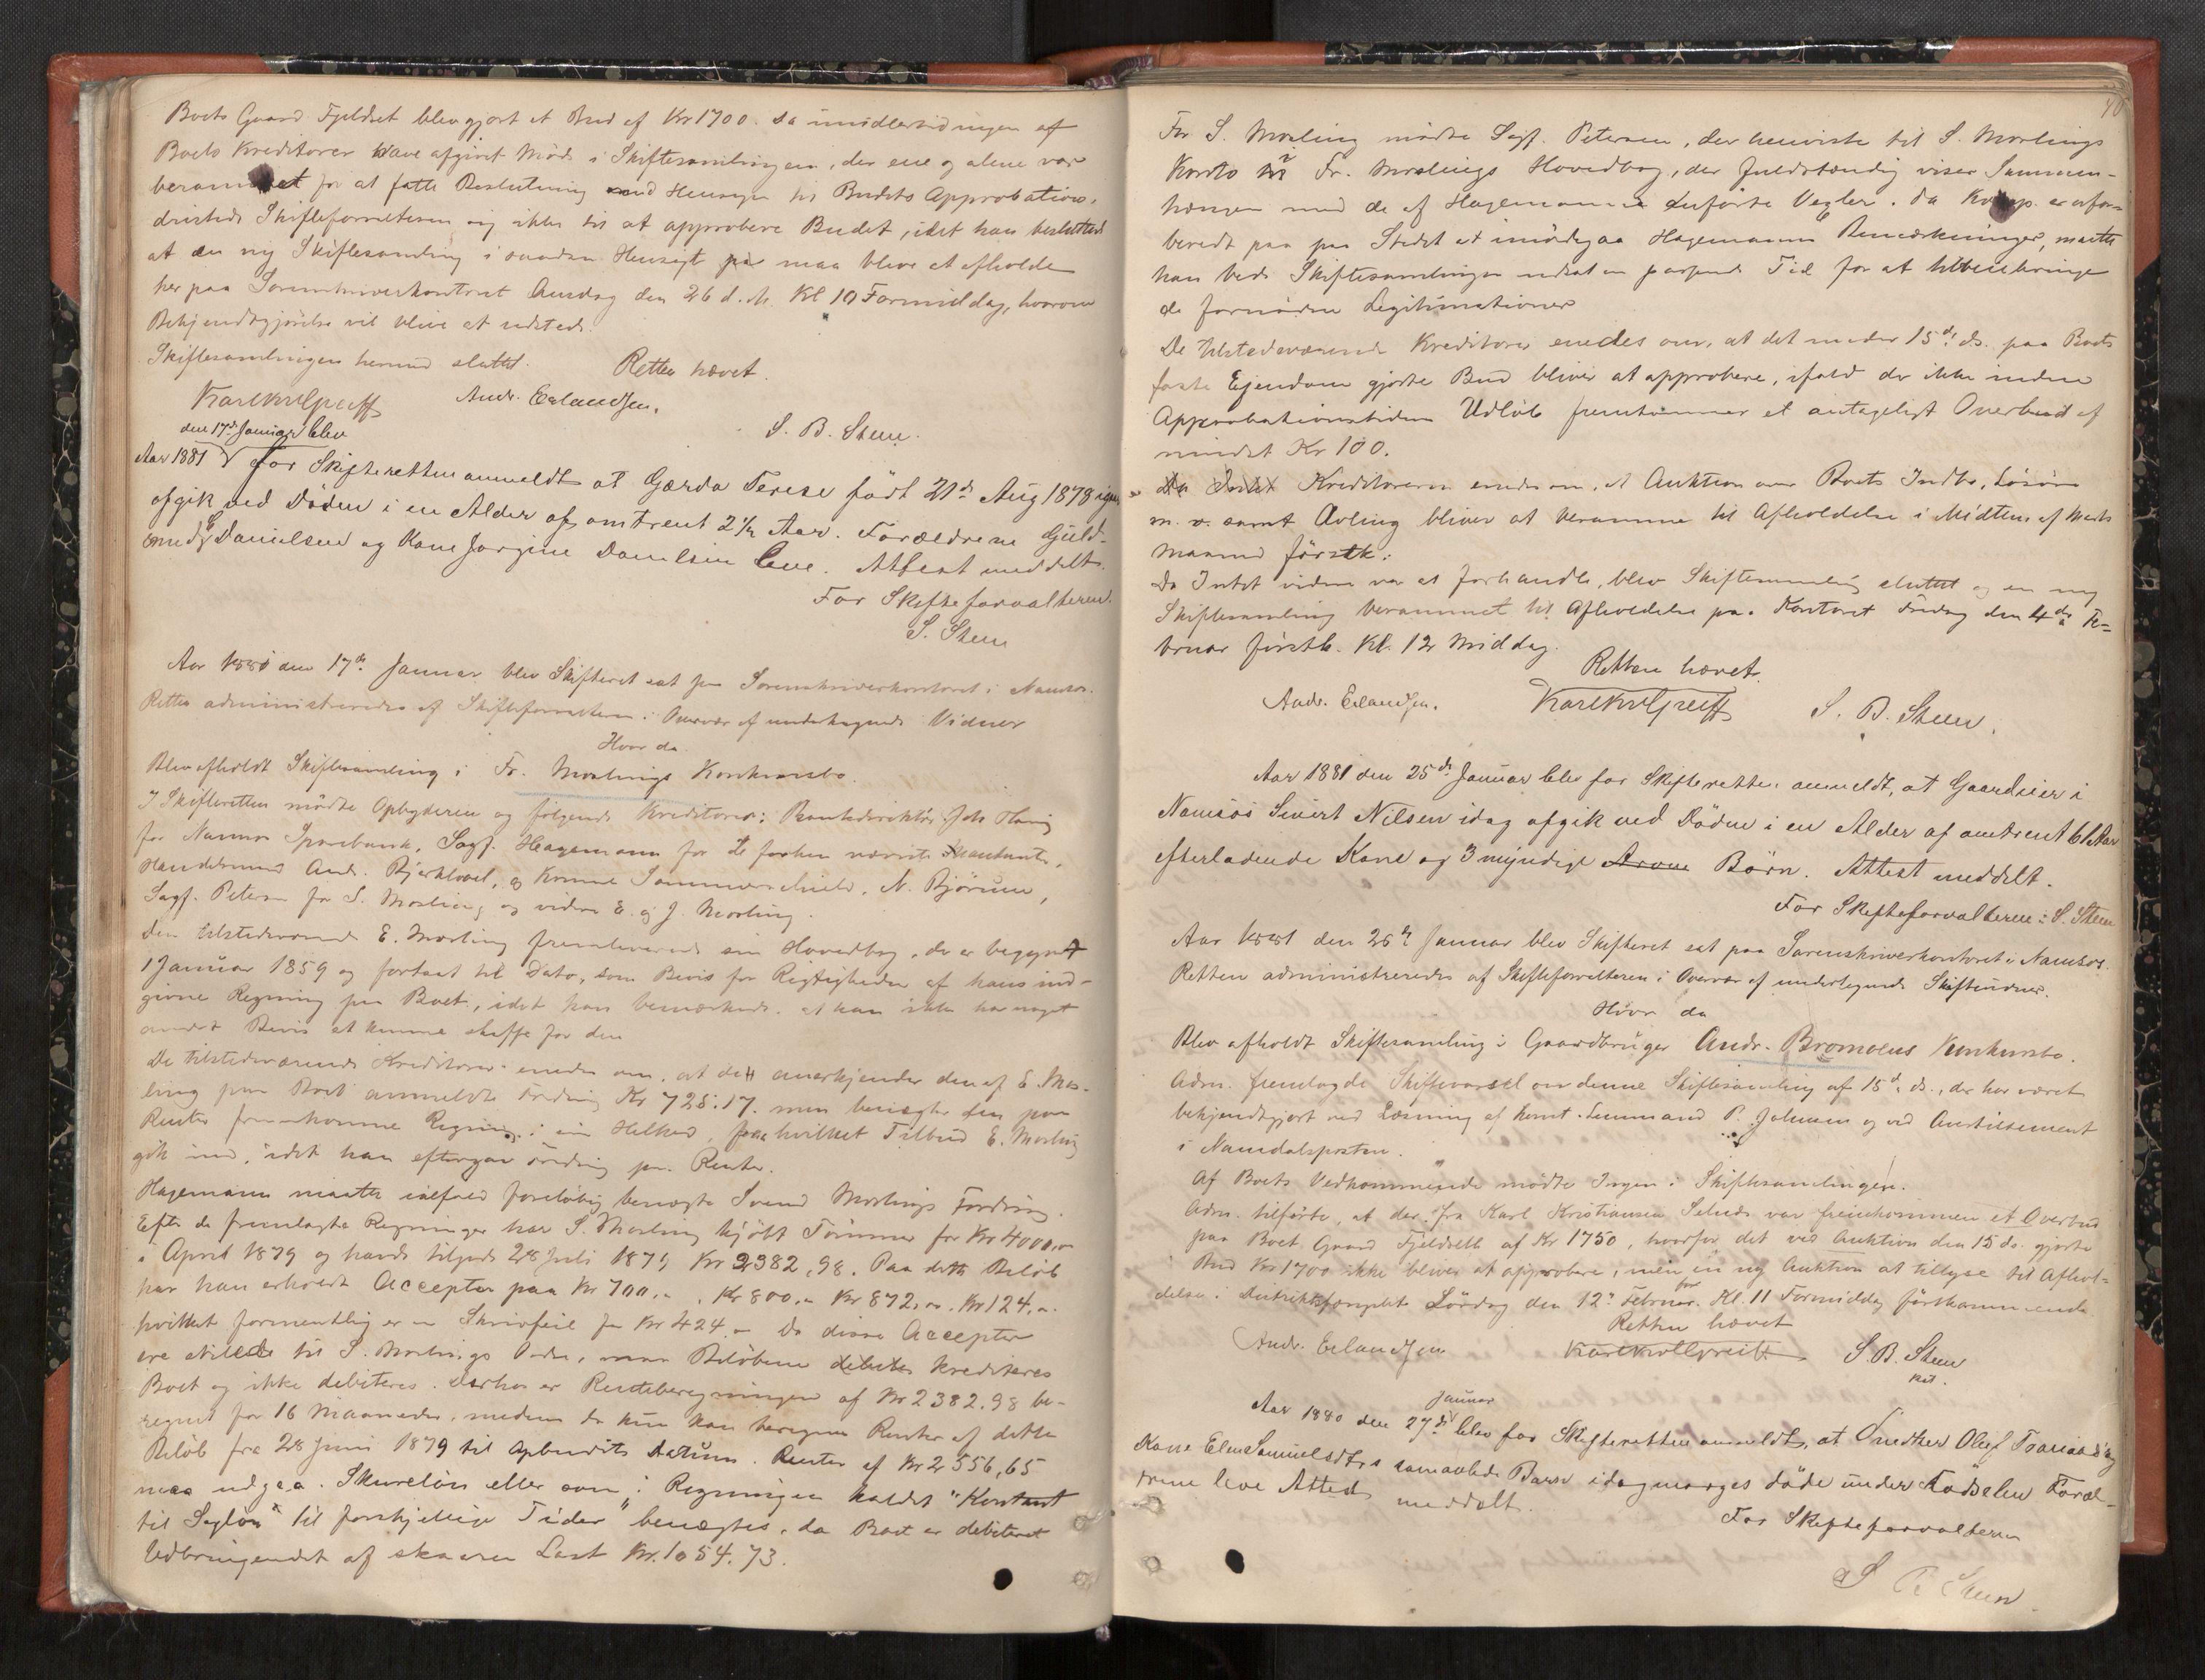 Boets Gaard Fjeldset blev gjort et Bud af Kr 1700. Da imidlertid ingen af
Boets Kreditorer have afgivet Møde i Skiftesamlingen, der ene og alene var
berammet for at fatte Beslutning med Hensyn til Budets Approbation,
dristede Skifteforvalteren sig ikke til at approbere Budet, idet han besluttede
at en ny Skiftesamling i saadan Hensigt maa blive at afholde
her paa Sorenskriverkontoret Onsdag den 26 d. M. Kl 10 Formiddag, hvorom
Bekjendtgjørelse vil blive at udstede.
Skiftesamlingen hermed sluttet. Retten hævet.
Andr. Erlandsen.
S. B. Steen.
den 17de Januar blev
Aar 1881 for Skifteretten anmeldt at Gærda Terese født 21de Aug 1878 igaar
afgik ved Døden i en Alder af omtrent 2 1/2 Aar. Forældrene Guld-
smed Danielsen og Kone Jørgine Danielsen leve. Attest meddelt.
For Skifteforvalteren.
S. Steen
Aar 1881 den 17de Januar blev Skifteret sat paa Sorenskriverkontoret i Namsos.
Retten administreredes af Skifteforvalteren i Overvær af undertegnede Vidner
Hvor da
Blev afholdt Skiftesamling i Fr. Morlings Konkursbo.
I Skifteretten mødte Opbyderen og følgende Kreditorer: Bankdirektør Joh Havig
for Namsos Sparebank, Sagf. Hagemann for de forhen nævnte Mandanter,
Handelsmand And. Bjerkhoel, og Sommerschield, N. Bjørum,
Sagf. Petersen for S. Morling og videre E. og J. Morling.
Den tilstedeværende E. Morling fremleverede sin Hovedbog, der er begyndt
1 Januar 1859 og fortsat til Dato, som Bevis for Rigtigheden af hans ind-
givne Regning paa Boet, idet han bemærkede at han ikke har noget
andet Bevis at kunne skaffe for den
De tilstedeværende Kreditorer enedes om, at de anerkjender den af E. Mor-
ling paa Boet anmeldte Fordring Kr 725.17. men benægter den paa
Renter fremkomne Regning i sin Helhed, paa hvilket Tilbud E. Morling
gik ind, idet han eftergav Fordring paa Renter.
Hagemann maatte ialfald foreløbig benægte Svend Morlings Fordring.
Efter de fremlagte Regninger har S. Morling kjøbt Tømmer for Kr 4000,00
i April 1879 og havde tilgode 28 Juli 1879 Kr 2382,98. Paa dette Beløb
har han erholdt Accepter paa Kr 700.- , Kr 800.- Kr 872.- Kr 124.-
hvilket formentlig er en Skrivfeil for Kr 424.- Da disse Accepter
ere stillede til S. Morlings Ordre, maa Beløbene krediteres
Boet og ikke debiteres. Derhos er Renteberegningen af Kr 2382.98 be-
regnet for 16 Maaneder, medens der kun kan beregnes Renter af dette
Beløb fra 28 Juni 1879 til Opbudets Datum. Renter af Kr 2556,65
maa udgaa. Skureløn eller som i Regningen kaldet "Kontant
til Sagløn" til forskjellige Tider" benægtes, da Boet er debiteret
Udbringendet af skaaren Last Kr. 1054.73.
40
For S. Morling mødte Sagf. Petersen, der henviste til S. Morlings
Konto i Fr. Morlings Hovedbog, der fuldstændig viser Sammen-
hængen med de af Hagemann anførte Vexler. Da Komp. er ufor-
beredt paa paa Stedet at imødegaa Hagemanns Bemærkninger, maatte
han bede Skiftesamlingen udsat en passende Tid for at tilveiebringe
de fornødne Legitimationer
De tilstedeværende Kreditorer enedes om, at det under 15de ds. paa Boets
faste Ejendom gjorte Bud bliver at approbere, ifald der ikke inden
Approbationstidens Udløb fremkommer et antageligt Overbud af
mindst Kr 100.
Kreditorerne enedes om, at Auktion over Boets Indbo, Løsøre
m. v. samt Avling bliver at beramme til Afholdelse i Midten af Marts
Maaned førstk.
Da Intet videre var at forhandle, blev Skiftesamling sluttet og en ny
Skiftesamling berammet til Afholdelse paa Kontoret Fredag den 4de Fe-
bruar førstk. Kl. 12 Middag.
Retten hævet.
Andr. Erlandsen.
S. B. Steen.
Aar 1881 den 25de Januar blev for Skifteretten anmeldt, at Gaardeier i
Namsos Sivert Nilsen idag afgik ved Døden i en Alder af omtrent 61 Aar
efterladende Kone og 3 myndige Børn. Attest meddelt.
For Skifteforvalteren: S. Steen
Aar 1881 den 26de Januar blev Skifteret sat paa Sorenskriverkontoret i Namsos.
Retten administreredes af Skifteforvalteren i Overvær af undertegnede Skiftevidner.
Hvor da
Blev afholdt Skiftesamling i Gaardbruger Andr. Bromoens Konkursbo.
Adm. fremlagde Skiftevarsel om denne Skiftesamling af 15de ds., der har været
bekjendtgjort ved Læsning af konst. Lensmand P. Johnsen og ved Avertissement
i Namdalsposten.
Af Boets Vedkommende mødte Ingen i Skiftesamlingen.
Adm. tilførte, at der fra Karl Kristiansen Selnes var fremkommen et Overbud
paa Boets Gaard Fjeldseth af Kr 1750, hvorfor det ved Auktion den 15 ds. gjorte
Bud Kr 1700 ikke bliver at approbere, men en ny Auktion at tillyse til Afhol-
delse i Distriktsfængslet Lørdag den 12te Februar Kl. 11 Formiddag førstkommende
Retten hævet
Andr. Erlandsen
S. B. Steen
Januar
Aar 1880 den 27de blev for Skifteretten anmeldt, at Snedker Oluf Tobiasen og
Kone Elen Samuelsdtrs samavlede Barn idagmorges døde under Fødselen Foræl-
drene leve Attest meddelt.
For Skifteforvalteren
S B Steen